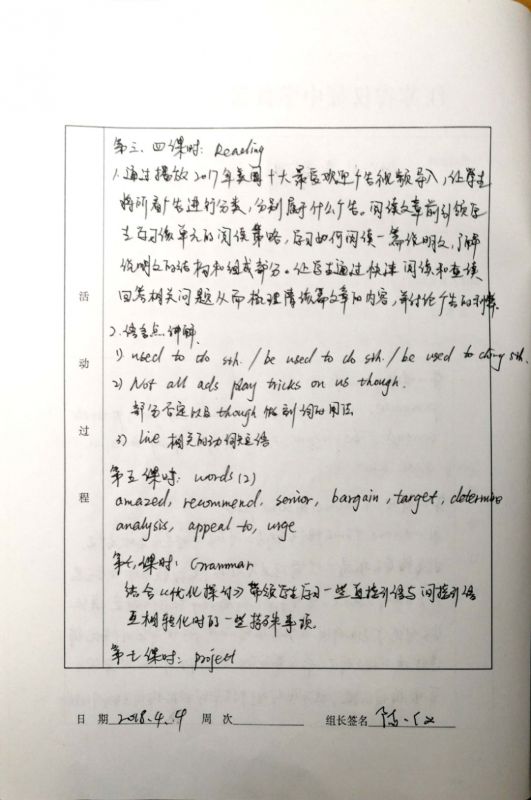 第三、四课时: Reading
1. 通过播放2017年美国十大最受欢迎广告视频导入,让学生
将所看广告进行分类,分别属于什么广告。阅读文章前引领学
生学习该单元的阅读策略,学习如何阅读一篇说明文,了解
说明文的结构和组成部分。让学生通过快速阅读和查读
回答相关问题从而梳理清该篇文章的内容,并讨论广告的利弊.
2. 语言点讲解.
1) used to do sth. / be used to do sth. / be used to doing sth.
2) Not all ads play tricks on us though.
部分否定以及though做副词的用法
3) lie 相关的动词短语
第五课时: words (2)
amazed, recommend, senior, bargain, target, determine
analysis, appeal to, urge
第六课时: Grammar
结合《优化探究》带领学生学习一些直接引语与间接引语
互相转化时的一些特殊事项.
第七课时: project
活
动
过
程
日 期 2018.4.4 周 次 组长签名